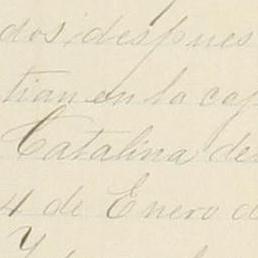 dos, despues
tian en la cap
Catalina de
4 de Enero d
Y